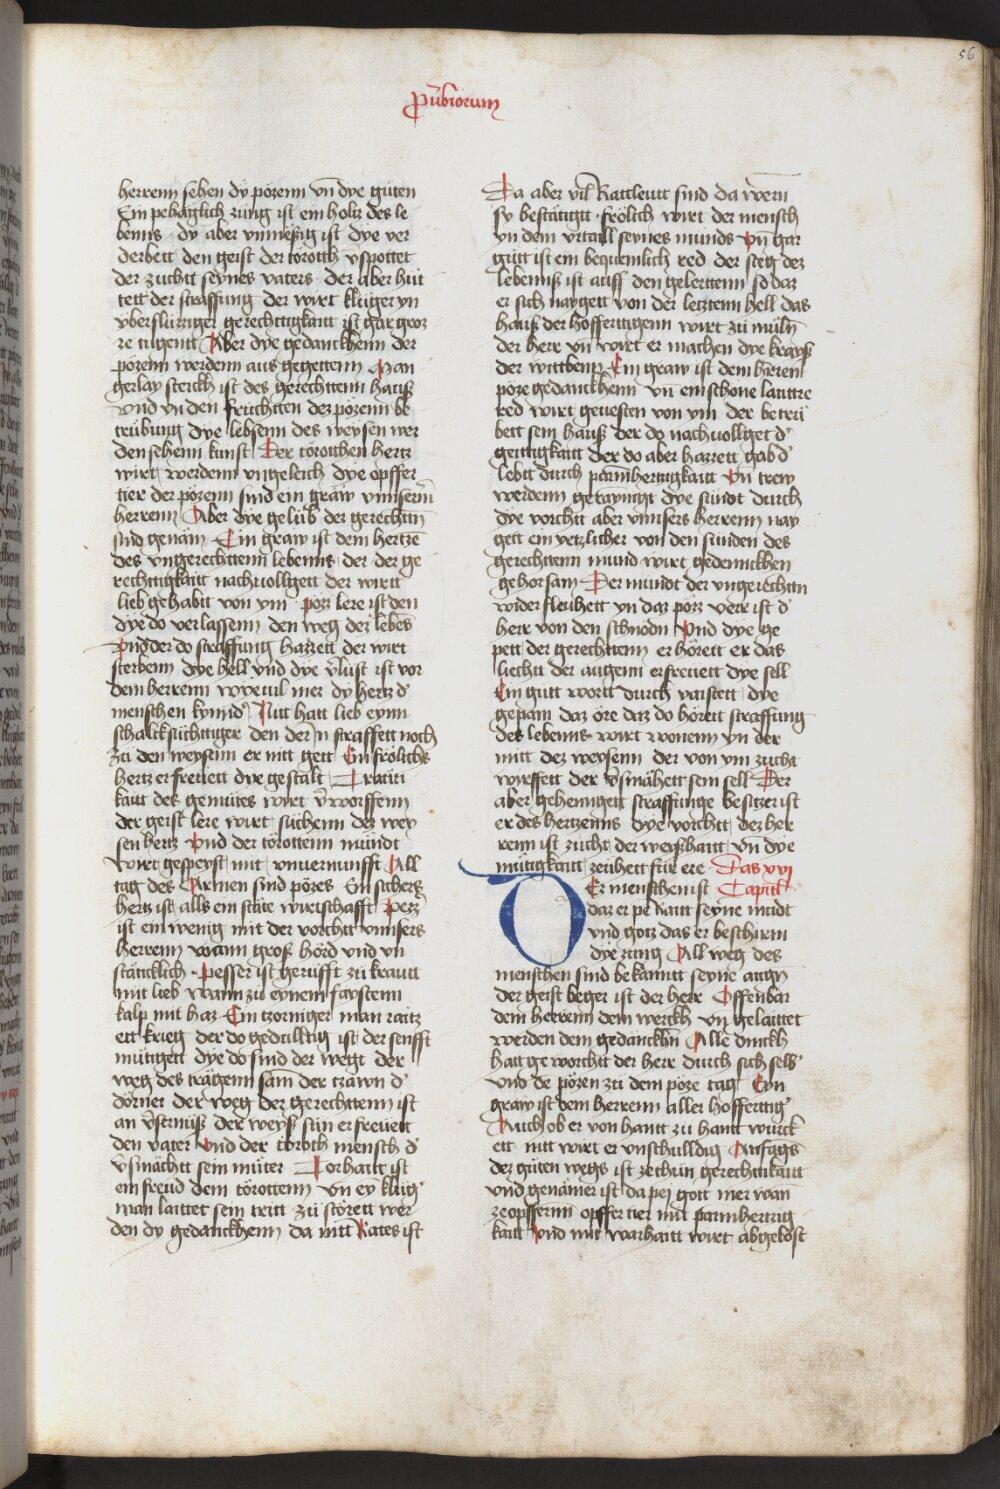 56
prūbiorum
herrenn sehen dÿ pözenn vn̄ dye gūten
Ein pehäglich züng ist ein holtz des le
benns · dy aber vnmeßig ist dye ver
derbett den geist der törotth vspottet
der zuchtt seynes vaters der aber hüt
tett der straffung der wirt klüger yn
vberflüzziger gerechttigkaitt ist gar groz
ze tugentt Aber dye gedanckhenn der
pözenn werdenn aus gegettenn Man
gerlay sterckh ist des gerechttenn hauß
vnd yn den früchtten dez pözenn be
trübung dye lebsenn des weysen wer
den sehenn kunst Der törotthen hertz
wirt werdenn vngeleich dye opffer
tier der pözenn sind ein gräw vnnserm̄
herrenn Aber dye gelüb der gerechttn̄
sind genäm Ein graw ist dem hertzē
des vngerechttenn lebenns der der ge
rechttigkaitt nachvollgett der wirtt
lieb gehabtt von ym pözz lere ist den
dye do verlassenn den weg dez lebēs
Vnd der do straffung hazzett der wirt
sterbenn dye hell vnd dye v̄lust ist vor
dem herrenn wyevil mer dy hertz d'
menschen kynnd' Nitt hatt lieb eynn
schalcksüchttiger den der ÿn straffett noch
zu den weysenn er nitt gett Ein frölichs
hertz erfreuett dye gestalt Traūri
kaitt des gemütes wirt v̄worffenn
der geist lere wirt süchenn dez wey
sen hertz Vnd der törottenn mündt
wirt gespeyst mit vnuernunfft All
tag des Armen sind pözes Ein sichers
hertz ist alls ein stäte wirtschafft Pezz'
ist ein wenig mit der vorchtt vnnsers
herrenn wann groß hörd vnd vn
stäncklich · Pesser ist gerüfft zu krautt
mit lieb wann zu eynem faystenn
kalp mit haz Ein tzorniger man raitz
ett krieg der do gedulltig ist der senfft
mütigett dye do sind der wegt der
weg des trägenn sam der tzawn d'
dörner der weg der gerechttenn ist
an v̄stmüß der weyß sün erfreuett
den vater Vnd der töroth mensch d'
v̄smächtt sein müter Torhaitt ist
ein freud dem törottenn vn̄ eÿ klüg'
man laittet sein tritt zu störett wer
den dy gedanckhenn da nitt Rates ist
Da aber vil Rattleutt sind da wern̄
sy bestätügtt · frölich wirt der mensch
yn dem vrtaill seynes munds Vn̄ gar
gütt ist ein bequemlich red der steg dez
lebenns ist auff den gelerttenn so daz
er sich naygett von der letztenn hell das
hauß der hoffertttigenn wirt zu müln̄
der herr vn̄ wirt er machen dye krayß
der wittbenn Ein graw ist dem herren
pöze gedanckhenn vn̄ ein schone lauttre
red wirt geuesten von ym der betrü
bett sein hauß der do nachvollget d'
geittigkaitt der do aber hazzett gab d'
lebtt durch parmhertzigkaitt Vn̄ trew
werdenn geraynigt dye sündt durch
dye vorchtt aber vnnsers herrenn nay
gett ein yetzlicher von den sünden des
gerechttenn mund wirt gedennckhen
gehorsam Der mundt der vngerechttn
widerfleuhett yn daz pözz verr ist d'
herr von den schnödn̄ Vnd dye ge
pett der gerechttenn erhörett er das
liechtt der augenn erfreuett dye sell
Ein gutt wortt durch vaistett dye
gepain daz öre daz do hörett straffung
des lebenns wirt wonenn yn der
mitt dez weysenn der von ym zucht
wirffett der v̄smähett sein sell Der
aber gehenngett straffunge besitzer ist
er des hertzenns dye vorchtt dez her
renn ist zucht der weyßhaitt Vn̄ dye
mütigkaitt zeühett für ere Das xvj
Capitl
DEr menschenn ist
daz er pe raitt seyne mūdt
vnd gotz das er beschirm
dye zung All weg des
menschen sind bekanntt seyne augn̄
der geist beger ist der herr Offenbar
dem herrenn dem werckh vn̄ gelaittet
werden dem gedanckhn̄ Alle dinckh
hatt geworchtt der herr durch sich selb'
vnd de pözen zu dem pöze tag Eyn
graw ist dem herrenn aller hofferttig'
Auch ob er von hantt zu hantt wurck
ett nitt wirt er vnschulldig Anfāgs
dez güten wegs ist zethün gerechttikaitt
vnd genämer ist da pei gott mer wan̄
zeopffernn opffer tier mit parmhertzig
kaitt Vnd mit warhaitt wirt abgelöst